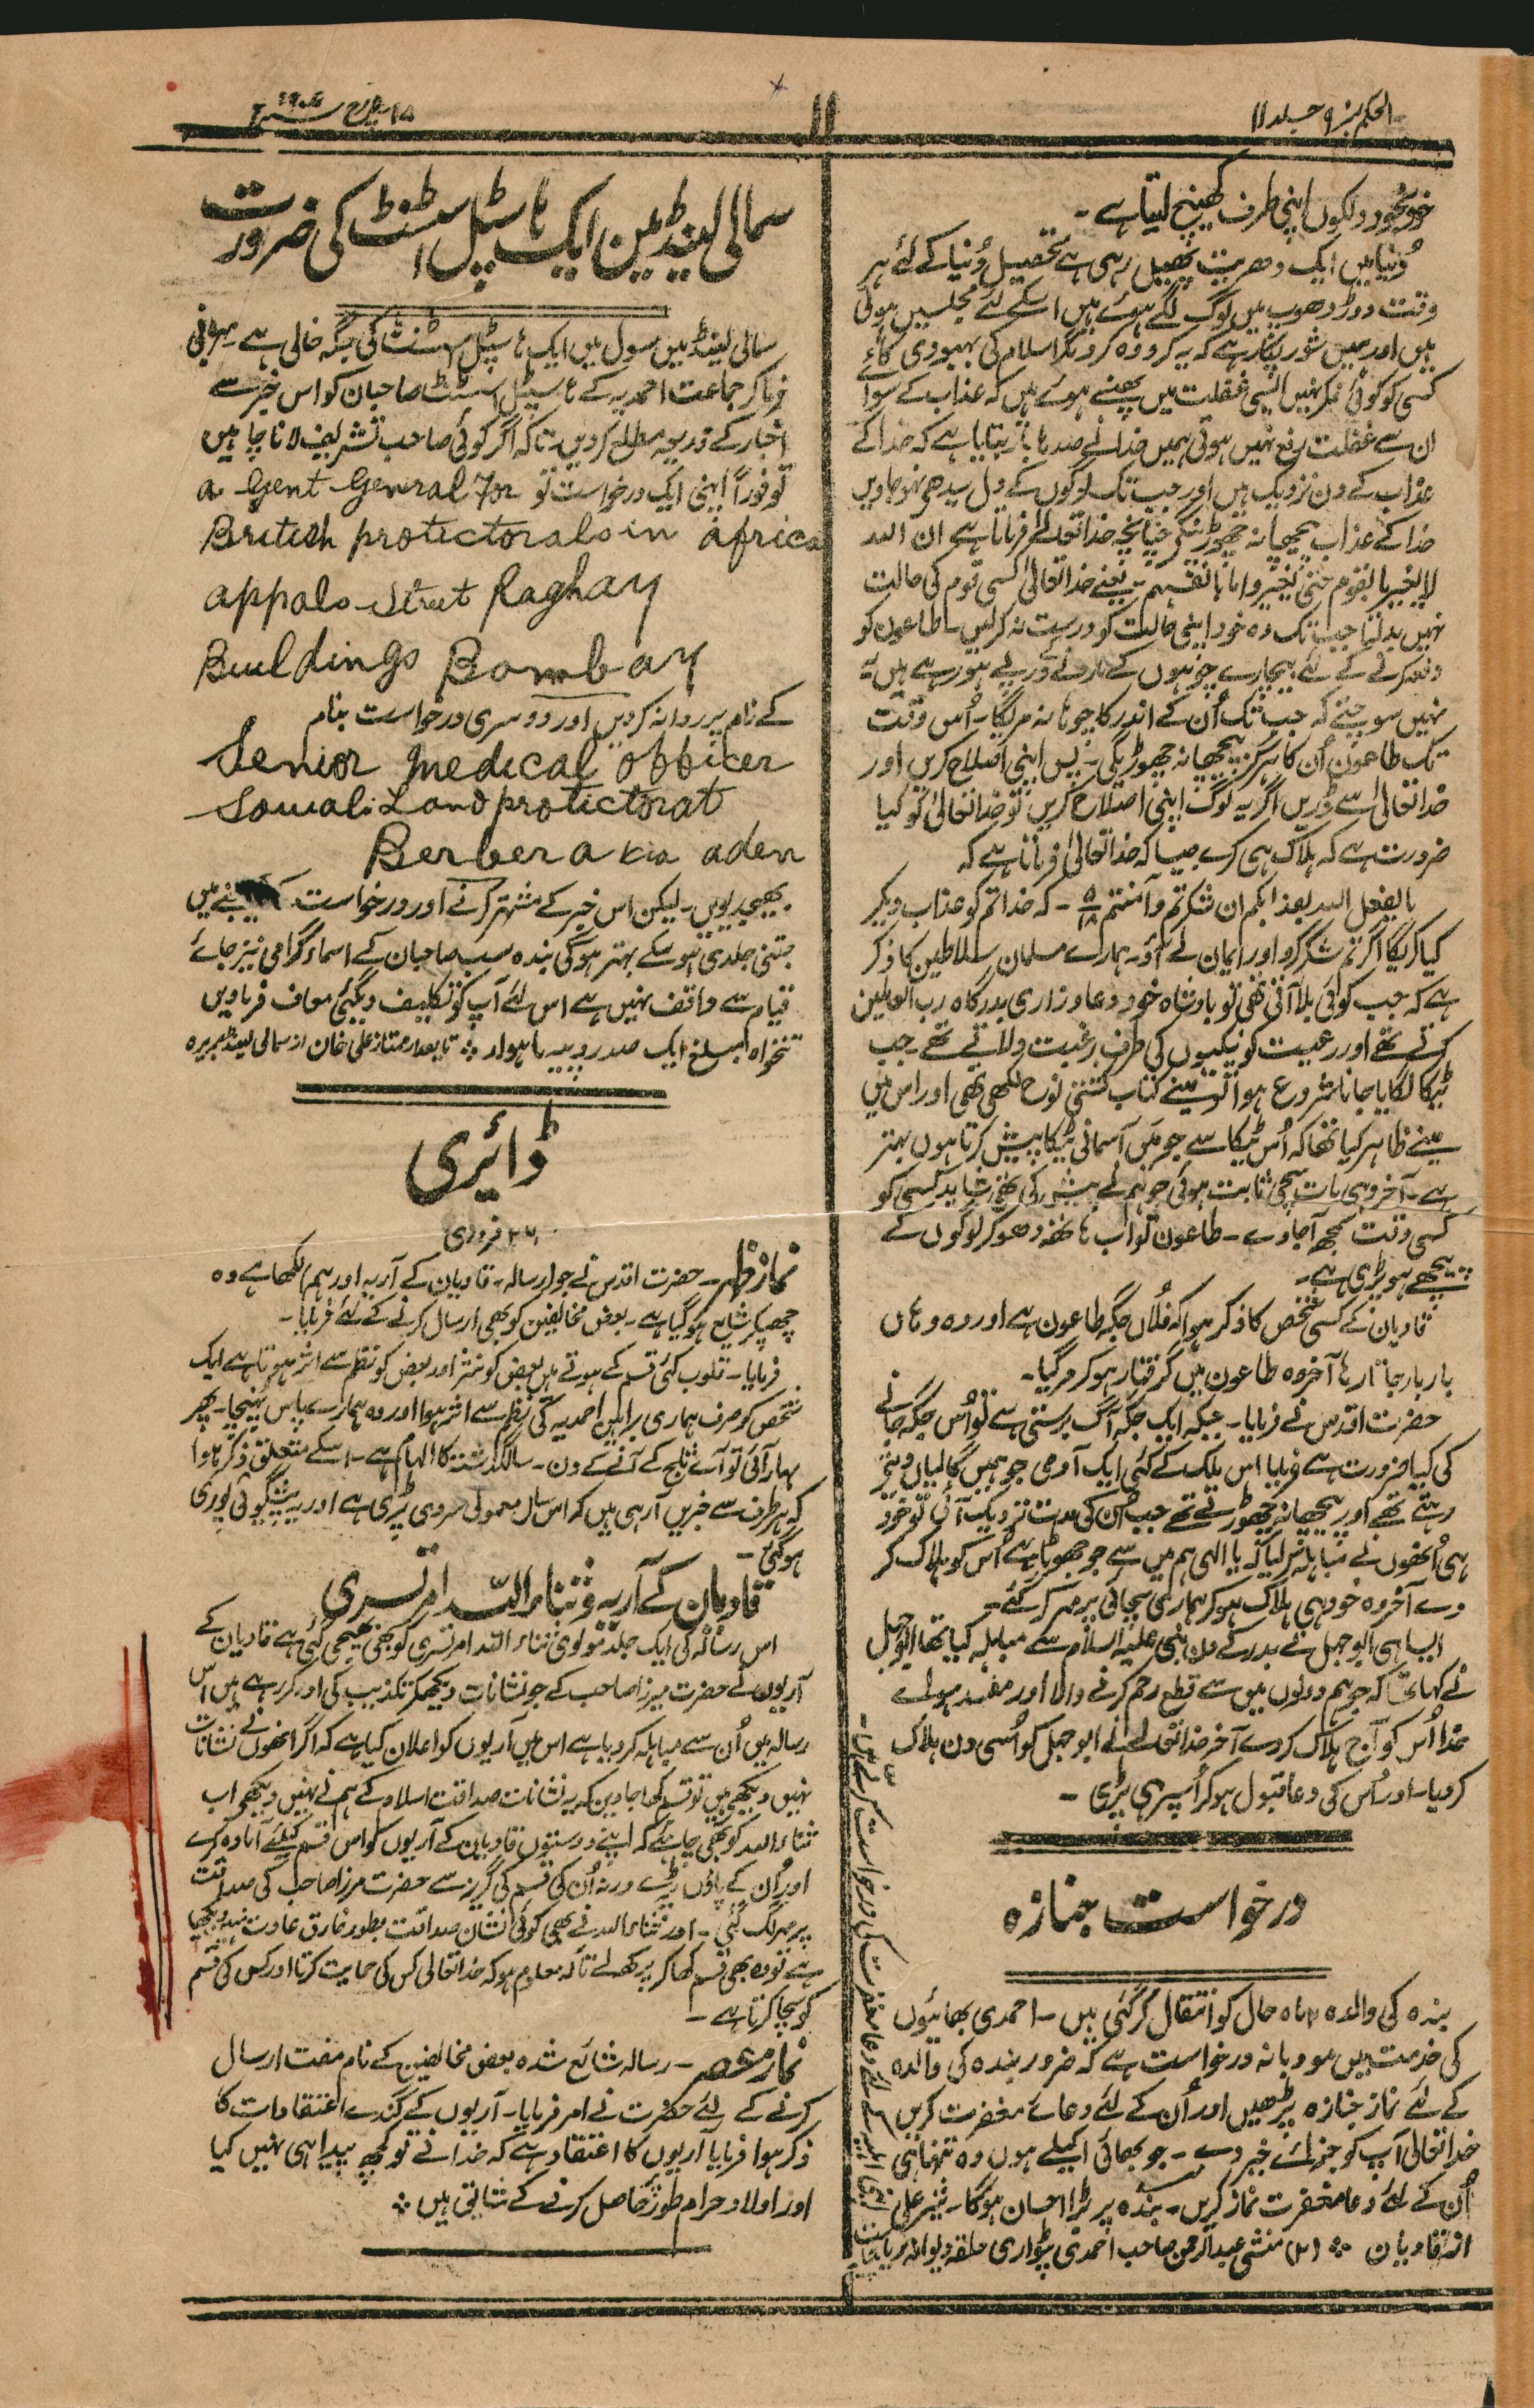 الحکم نمبر ۹ جلد ۱۱
۱۱
۱۷ مارچ سنہ ۱۹۰۷ء
خودبخود دلکوں اپنی طرف کھینچ لیتا ہے۔
دُنیا میں ایک دہریت پھیل رہی ہے تحصیل دُنیا کے لئے ہر
وقت دوڑ دھوپ میں لوگ لگے ہوئے ہیں اسکے لئے مجلسیں ہوتی
ہیں اور ہمیں شور پکار ہے کہ یہ کرو وہ کرو مگر اسلام کی بہبودی کا
کسی کو کوئی فکر نہیں ایسی غفلت میں پھنسے ہوئے ہیں کہ عذاب کے سوائے
ان سے غفلت رفع نہیں ہوتی ہمیں خدا نے صدہا بار بتایا ہے کہ خدا کے
عذاب کے دن نزدیک ہیں اور جب تک لوگوں کے دل سیدھے نہو جاویں
خدا کے عذاب پیچھا نہ چھوڑینگے چنانچہ خدا تعالےٰ فرماتا ہے ان اللہ
لا یغیر ما بقوم حتی یغیروا ما بانفسہم۔ یعنے خدا تعالیٰ کسی قوم کی حالت
نہیں بدلتا جب تک وہ خود اپنی حالت کو درست نہ کرلیں۔ طاعون کو
دفعہ کرنے کے لئے بیچارے چوہوں کے مارنے کے درپے ہو رہے ہیں یہ
نہیں سوچتے کہ جب تک اُن کے اندر کا چوہا نہ مریگا۔ اُس وقت
تک طاعون اُن کا ہرگز پیچھا نہ چھوڑیگی۔ پس اپنی اصلاح کریں اور
خدا تعالیٰ سے ڈریں اگر یہ لوگ اپنی اصلاح کریں تو خدا تعالیٰ کو کیا
ضرورت ہے کہ ہلاک ہی کرے جیسا کہ خدا تعالیٰ فرماتا ہے کہ
ما یفعل اللہ بعذابکم ان شکرتم وآمنتم ۵/۱۸ ۔ کہ خدا تم کو عذاب دیکر
کیا کریگا اگر تم شکر کرو اور ایمان لے آؤ۔ ہمارے مسلمان سلاطین کا ذکر
ہے کہ جب کوئی بلا آتی تھی تو بادشاہ خود دعا وزاری بدرگاہ رب العلمین
کرتے تھے اور رعیت کو نیکیوں کی طرف رغبت دلاتے تھے۔ جب
ٹیکا لگایا جانا شروع ہوا تو مینے کتاب کشتی نوح لکھی تھی اور اس میں
مینے ظاہر کیا تھا کہ اُس ٹیکا سے جو میں آسمانی ٹیکا پیش کرتا ہوں بہتر
ہے۔ آخر وہی بات سچی ثابت ہوئی جو ہم نے پیش کی تھی شاید کسی کو
کسی وقت سمجھ آجاوے۔ طاعون تو اب ہاتھ دھو کر لوگوں کے
پیچھے ہو پڑی ہے۔
قادیان کے کسی شخص کا ذکر ہوا کہ فلاں جگہ طاعون ہے اور وہ وہاں
بار بار جاتا رہا آخر وہ طاعون میں گرفتار ہو کر مر گیا۔
حضرت اقدس نے فرمایا۔ جبکہ ایک جگہ آگ برستی ہے تو اُس جگہ جانے
کی کیا ضرورت ہے فرمایا اس ملک کے کئی ایک آدمی جو ہمیں گالیاں وغیرہ
دیتے تھے اور پیچھا نہ چھوڑتے تھے جب اُن کی مدت نزدیک آئی تو خود
ہی اُنھوں نے مباہلہ کر لیا کہ یا الہی ہم میں سے جو جھوٹا ہے اُس کو ہلاک کر
دے آخر وہ خود ہی ہلاک ہو کر ہماری سچائی پر مہر کر گئے۔
ایسا ہی ابو جہل نے بدر کے دن نبی علیہ السلام سے مباہلہ کیا تھا ابو جہل
نے کہا تھا کہ جو ہم دونوں میں سے قطع رحم کرنے والا اور مفسد ہو اے
خدا اُس کو آج ہلاک کر دے آخر خدا تعالےٰ نے ابو جہل کو اُسی دن ہلاک
کر دیا۔ اور اُس کی دعا قبول ہو کر اُسپر ہی پڑی۔
درخواست جنازہ
بندہ کی والدہ ۲ ماہ حال کو انتقال کر گئی ہیں۔ احمدی بھائیوں
کی خدمت میں مودبانہ درخواست ہے کہ ضرور بندہ کی والدہ
کے لئے نماز جنازہ پڑھیں اور اُن کے لئے دعائے مغفرت کریں
خدا تعالیٰ آپ کو جزائے خیر دے۔ جو بھائی اکیلے ہوں وہ تنہا ہی
اُن کے لئے دعا مغفرت نماز کریں۔ بندہ پر بڑا احسان ہوگا۔ شیر علی
از قادیان ❖ (۲) منشی عبدالرحمن صاحب احمدی پٹواری حلقہ
اپنی اہلیہ کے لئے دعا مغفرت کی درخواست کرتے ہیں۔
سمالی لینڈ مین ایک ہاسپٹل اسسٹنٹ کی ضرورت
سمالی لینڈ میں سول میں ایک ہاسپٹل اسسٹنٹ کی جگہ خالی ہے مہربانی
فرما کر جماعت احمدیہ کے ہاسپٹل اسسٹنٹ صاحبان کو اس خبر سے
اخبار کے ذریعہ مطلع کردیں تاکہ اگر کوئی صاحب تشریف لانا چاہیں
تو فوراً اپنی ایک درخواست تو a. Gent General For
British protictorals in africa
appalo Street Raghay
Buildings Bombay
کے نام پر روانہ کردیں اور دوسری درخواست بنام
Senior medical officer
Somali Land protictorat
Berbera via aden
بھیجدیویں۔ لیکن اس خبر کے مشتہر کرنے اور درخواست بھیجنے میں
جتنی جلدی ہو سکے بہتر ہوگی بندہ سب صاحبان کے اسماء گرامی نیز جائے
قیام سے واقف نہیں ہے اس لئے آپ کو تکلیف دیگئی معاف فرماویں
تنخواہ مبلغ ایک صد روپیہ ماہوار ❖ تابعدار ممتاز علی خان از سمالی لینڈ بربرہ
ڈائری
۲۷ فروری
نماز ظہر۔ حضرت اقدس نے جو (رسالہ۔ قادیان کے آریہ اور ہم) لکھا ہے وہ
چھپکر شایع ہو گیا ہے۔ بعض مخالفین کو بھی ارسال کرنے کے لئے فرمایا۔
فرمایا۔ قلوب کئی قسم کے ہوتے ہیں بعض کو نثر اور بعض کو نظم سے اثر ہوتا ہے ایک
شخص کو صرف ہماری براہین احمدیہ کی نظم سے اثر ہوا اور وہ ہمارے پاس پہنچا۔ پھر
بہار آئی تو آئے ثلج کے آنے کے دن۔ سالگذشتہ کا الہام ہے۔ اسکے متعلق ذکر ہوا
کہ ہر طرف سے خبریں آرہی ہیں کہ اس سال معمولی سردی پڑی ہے اور یہ پیشگوئی پوری
ہوگئی۔
قادیان کے آریہ و ثناء اللہ امرتسری
اس رسالہ کی ایک جلد مولوی ثناء اللہ امرتسری کو بھی بھیجی گئی ہے قادیان کے
آریوں نے حضرت میرزا صاحب کے جو نشانات دیکھکر تکذیب کی اور کر رہے ہیں اس
رسالہ میں اُن سے مباہلہ کر دیا ہے اس میں آریوں کو اعلان کیا ہے کہ اگر انھوں نے نشانات
نہیں دیکھے ہیں تو قسم کھا جاوین کہ یہ نشانات صداقت اسلام کے ہم نے نہیں دیکھے اب
ثناء اللہ کو بھی چاہئے کہ اپنے دوستوں قادیان کے آریوں کو اس قسم کیلئے آمادہ کرے
اور اُن کے پاؤں پڑے ورنہ اُن کی قسم کی گریز سے حضرت مرزا صاحب کی صداقت
پر مہر لگ گئی۔ اور ثناء اللہ نے بھی کوئی نشان صداقت بطور خارق عادت نہیں دیکھا
ہے تو وہ بھی قسم کھا کر پرکھ لے تاکہ معلوم ہو کہ خدا تعالی کس کی حمایت کرتا اور کس کی قسم
کو سچا کرتا ہے۔
نماز عصر۔ رسالہ شائع شدہ بعض مخالفین کے نام مفت ارسال
کرنے کے لئے حضرت نے امر فرمایا۔ آریوں کے گندے اعتقادات کا
ذکر ہوا فرمایا آریوں کا اعتقاد ہے کہ خدا نے تو کچھ پیدا ہی نہیں کیا
اور اولاد حرام طور پر حاصل کرنے کے شائق ہیں ❖